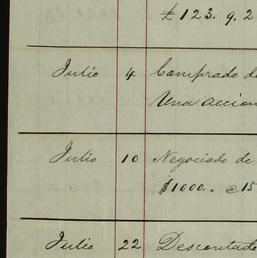 £ 123. 9. 2
Julio 4 Comprado de
Una accion
Julio 10 Negociado de
$1000.. @ 15
Julio 22 Descontado